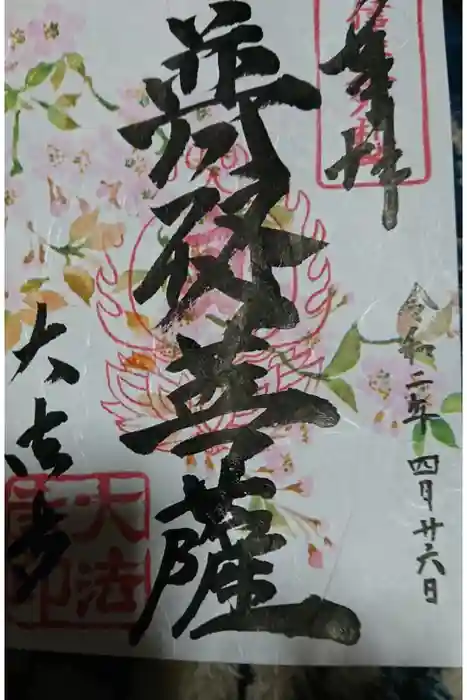 奉拝
菩薩
令和二年四月廿六日
大法寺
大法
寺印